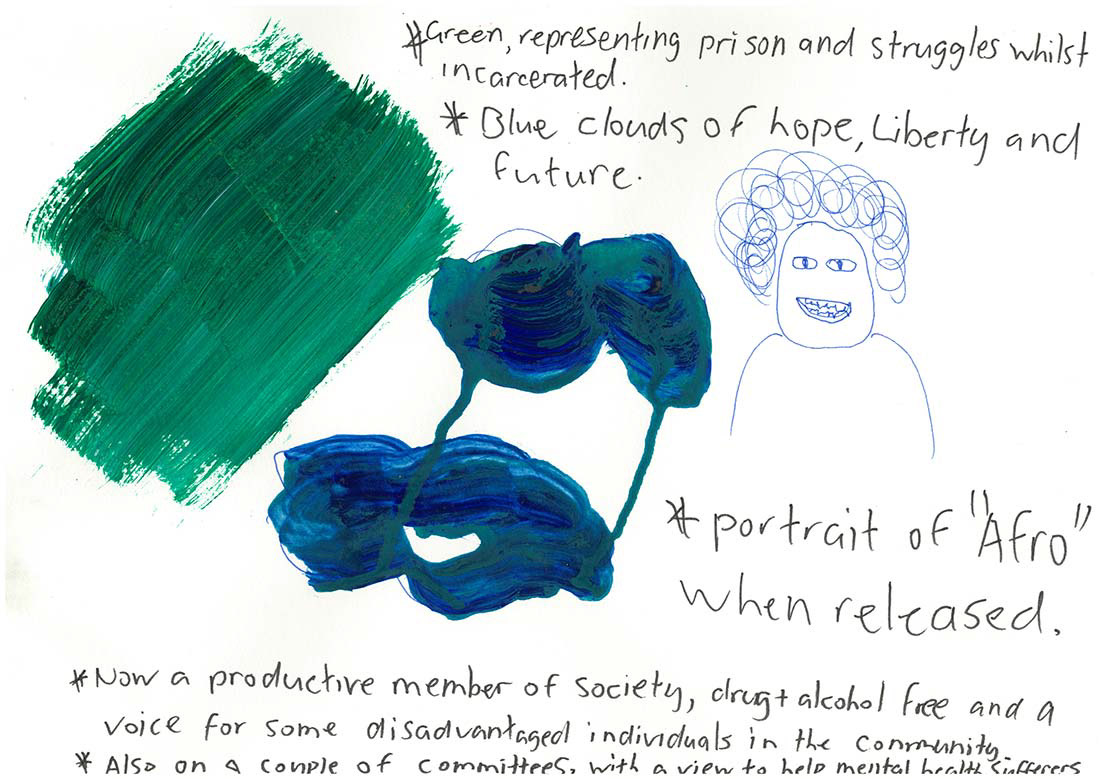 *Green, representing prison and struggles whilst
incarcerated.
* Blue clouds of hope, Liberty and
future.
* portrait of "Afro"
when released.
* Now a productive member of society, drug + alcohol free and a
voice for some disadvantaged individuals in the community.
* Also on a couple of committees, with a view to help mental health sufferers